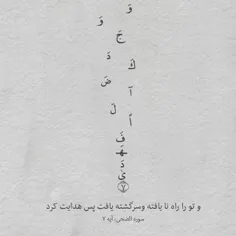 وَوَجَدَكَ ضَآلًّا فَهَدَىٰ ٧
و تو را راه نا یافته وسرگشته یافت پس هدایت کرد
سوره الضحی، آیه ۷